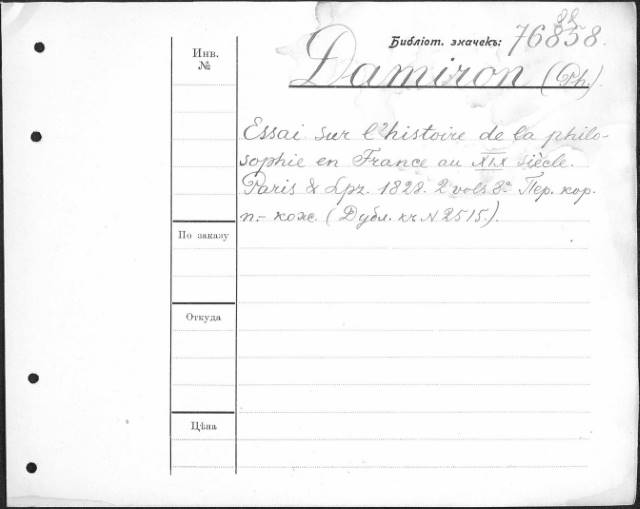 Библіот. значекъ: 76858.
88
Инв.
№
Damiron (Ph.)
Essai sur l'histoire de la philo-
sophie en France au XIX siècle.
Paris & Lpz. 1828. 2 vols 8º Пер. кор.
п.- кож. (Дубл. къ N 2515).
По заказу
Откуда
Цѣна